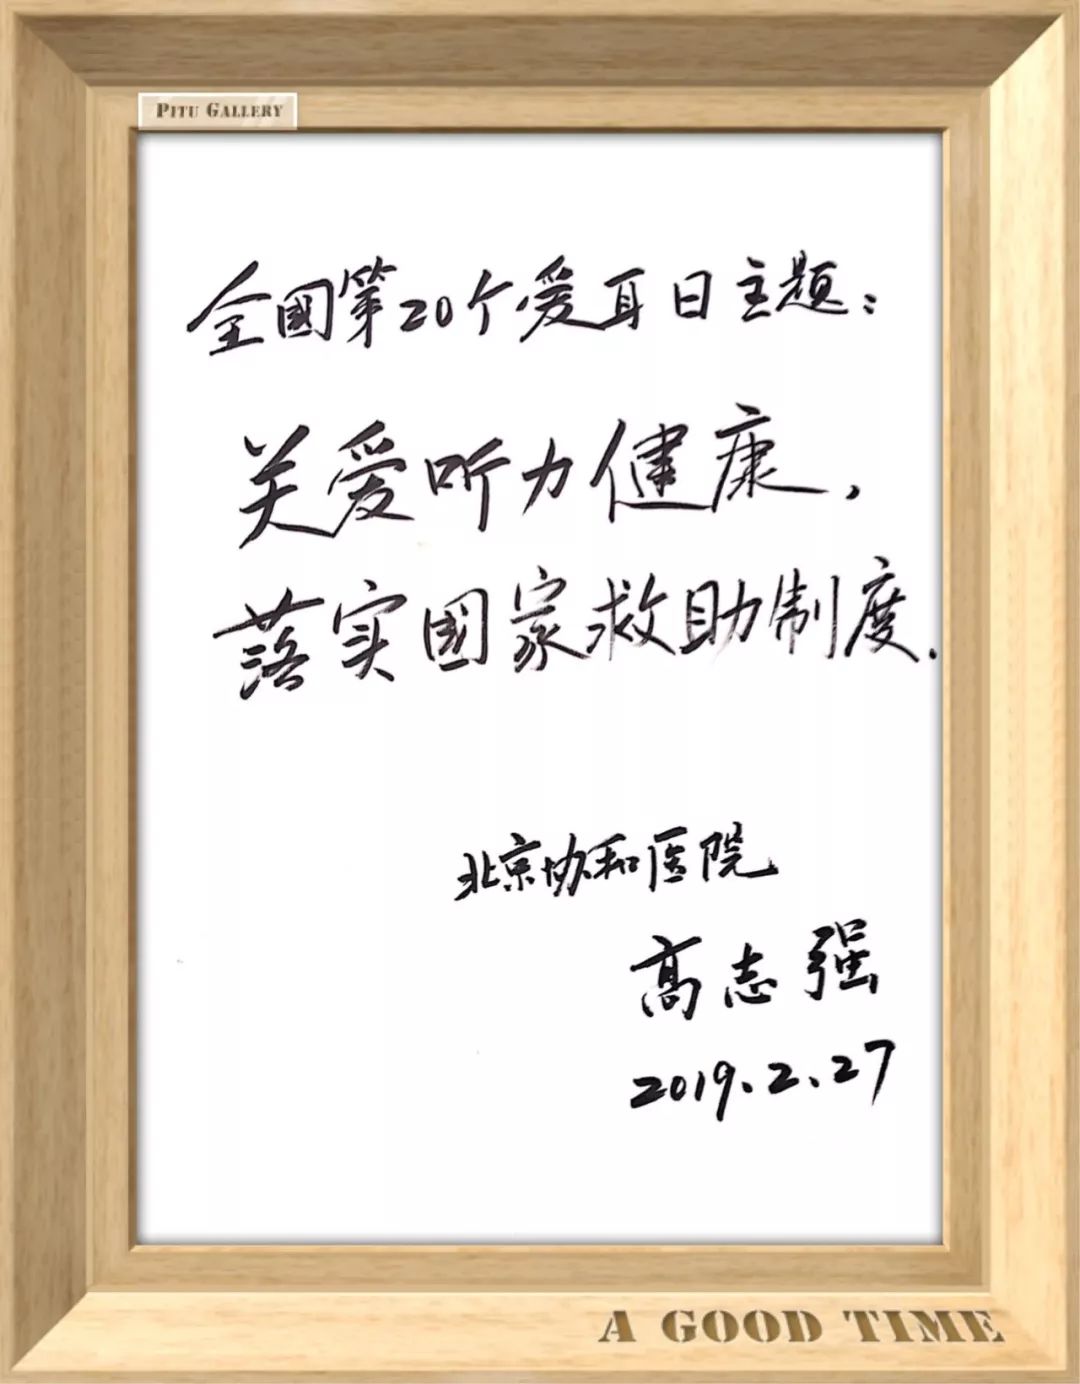 PITU GALLERY
全國第20个爱耳日主题：
关爱听力健康，
落实國家救助制度.
北京协和医院
高志强
2019.2.27
A GOOD TIME